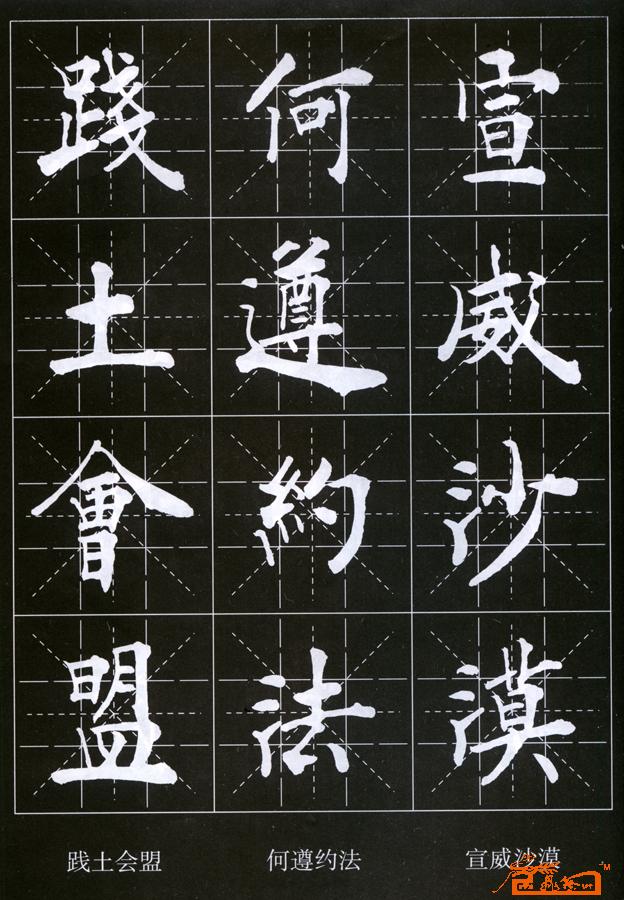 宣威沙漠
何遵約法
踐土會盟
践土会盟
何遵约法
宣威沙漠
TM